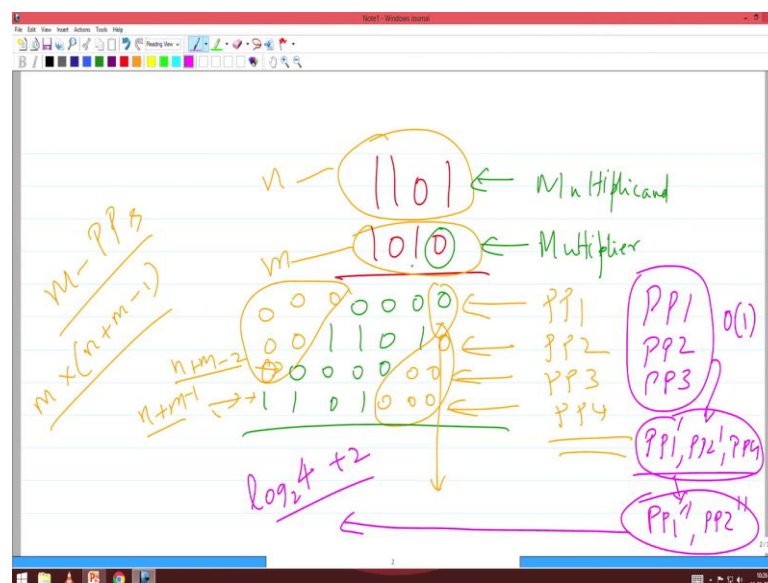 Note1 - Windows Journal
File Edit View Insert Actions Tools Help
Reading View
B I
n
1101
Multiplicand
m
1010
Multiplier
m - PPs
m x (n+m-1)
0 0 0 0 0 0 0
PP1
0 0 1 1 0 1 0
PP2
n+m-2
0 0 0 0 0 0 0
PP3
n+m-1
1 1 0 1 0 0 0
PP4
PP1
PP2
PP3
O(1)
PP1', PP2', PP4
PP1'', PP2''
log₂4 + 2
2